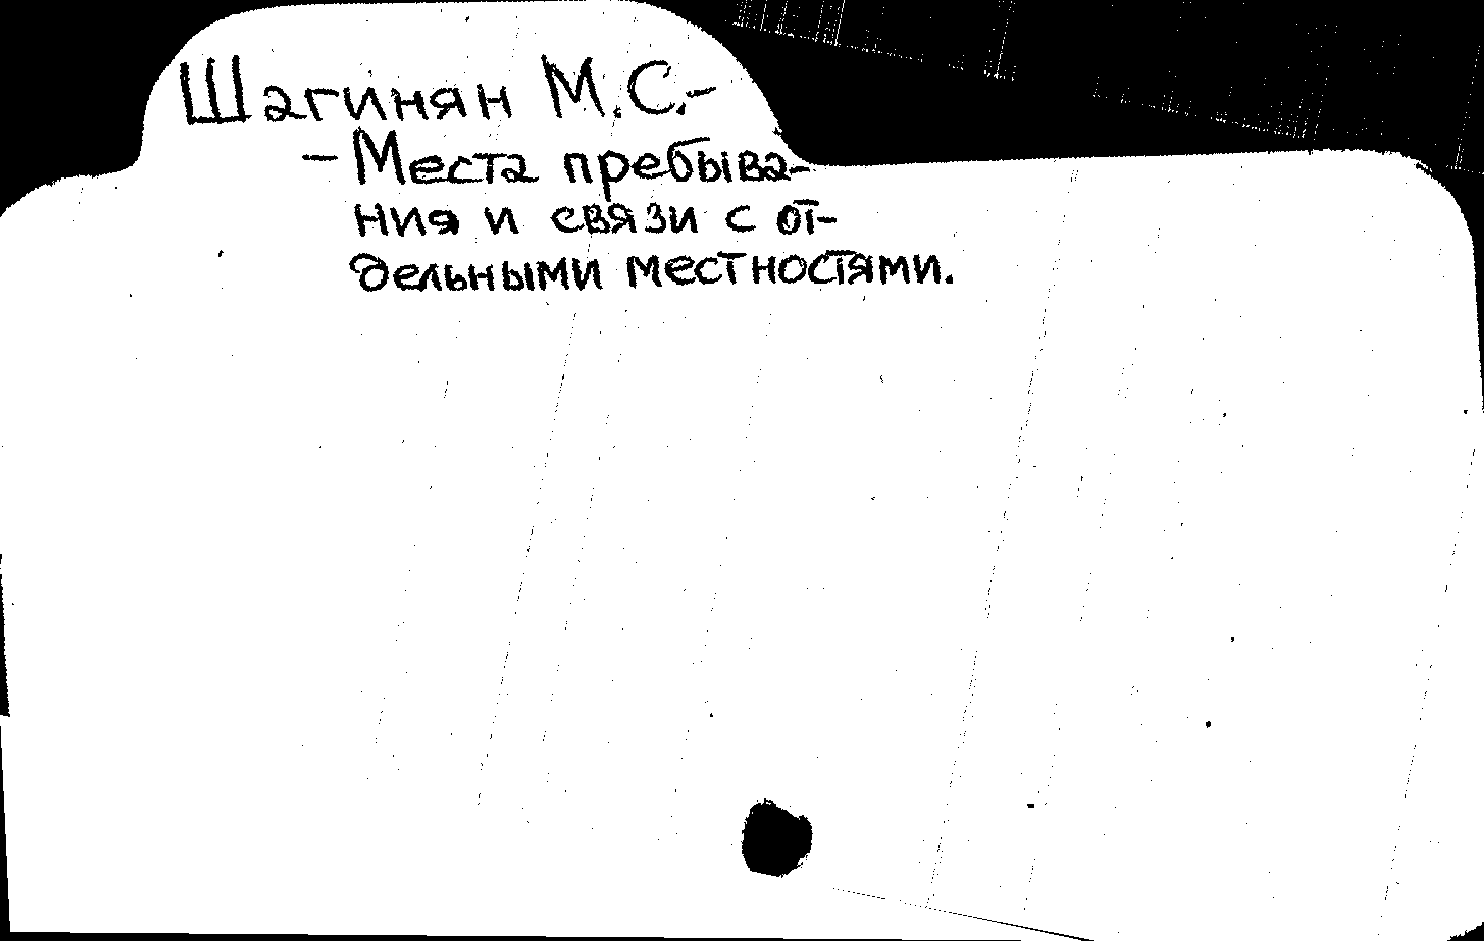 Шагинян М.С.-
- Места пребыва-
ния и связи с от-
дельными местностями.